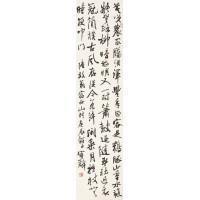 莫笑農家臘酒渾豐年留客足雞豚山重水複
疑無路柳暗花明又一村簫鼓追隨春社近衣
冠簡樸古風存從今若許閒乘月拄杖無
時夜叩門 陸放翁遊山西村